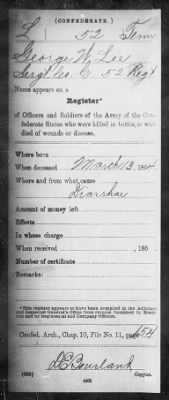 (CONFEDERATE.)
L 52 Tenn
George W. Lee
Sergt Co. C. 52 Regt
Name appears on a
Register*
of Officers and Soldiers of the Army of the Con-
federate States who were killed in battle, or who
died of wounds or disease.
Where born
When deceased March 13, 1864
Where and from what cause
Diarrhae
Amount of money left
Effects
In whose charge
When received , 186
Number of certificate
Remarks:
*This register appears to have been compiled in the Adjutant
and Inspector General's Office from returns furnished by
and by Regimental and Company Officers.
Confed. Arch., Chap. 10, File No. 11, page 154
Copyist.